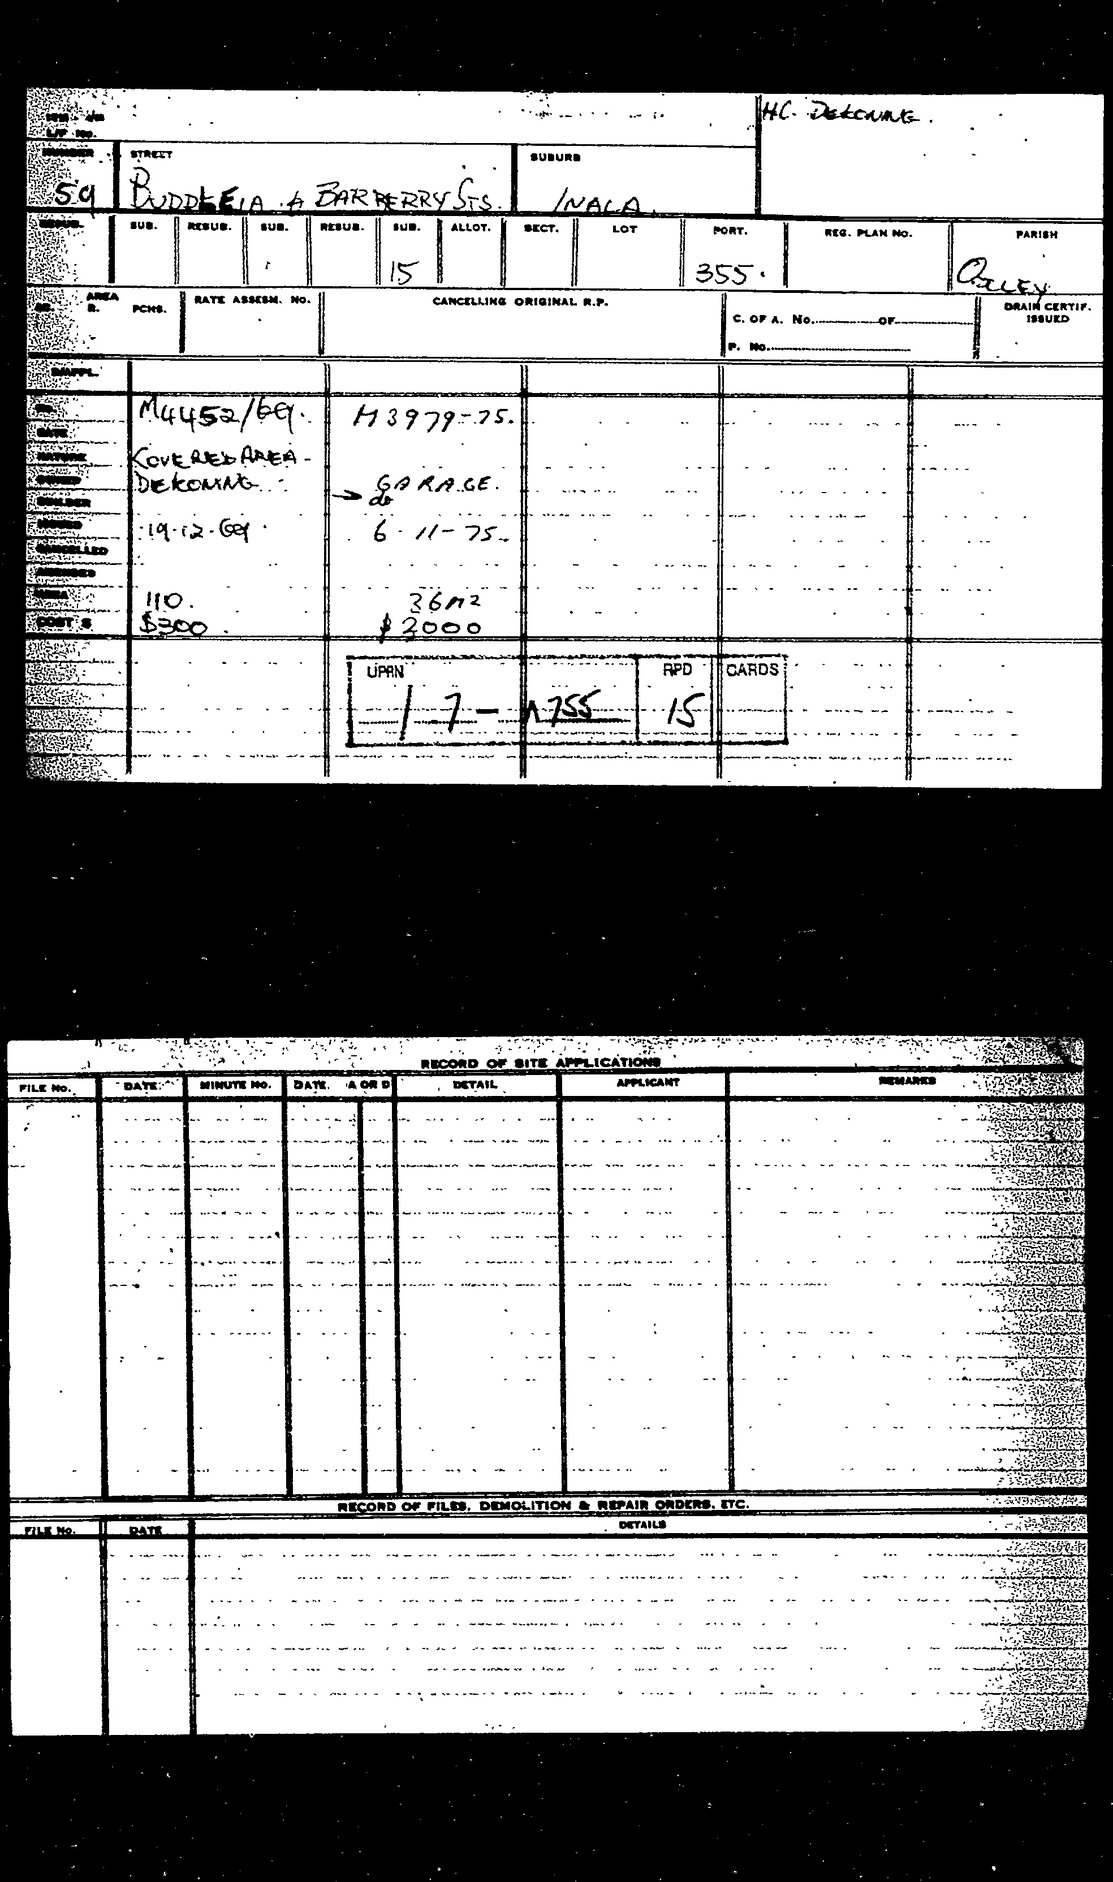 HC. DEKONING.
L/P No.
NUMBER STREET SUBURB
59 BUDDLEIA & BARBERRY STS. INALA.
RESUB. SUB. RESUB. SUB. RESUB. SUB. ALLOT. SECT. LOT PORT. REG. PLAN NO. PARISH
15 355. OXLEY
AREA
R. PCHS. RATE ASSESM. NO. CANCELLING ORIGINAL R.P. DRAIN CERTIF. ISSUED
C. OF A. No. OF
P. No.
B/APPL.
No. M4452/69. M3979-75.
DATE
NATURE COVERED AREA -
OWNER DEKONING. GARAGE.
BUILDER do
ISSUED 19.12.69. 6-11-75.
CANCELLED
AREA 110. 36M2
COST $ $300. $2000
UPRN RPD CARDS
1 7 - 755 15
RECORD OF SITE APPLICATIONS
FILE No. DATE MINUTE No. DATE. A OR D DETAIL APPLICANT REMARKS
RECORD OF FILES, DEMOLITION & REPAIR ORDERS, ETC.
FILE No. DATE DETAILS